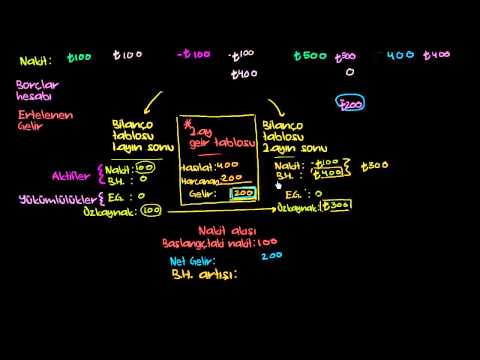 Nakit: ₺100 ₺100 -₺100 -₺100 ₺500 ₺500 -400 ₺400
₺400 0
Borçlar hesabı
₺200
Ertelenen Gelir
Bilanço tablosu 1.ayın sonu
* 2.ay gelir tablosu
Bilanço tablosu 2.ayın sonu
Aktifler
Nakit: 100
B.H.: 0
Hasılat: 400
Harcanan: 200
Gelir: 200
Nakit: -₺100
B.H.: ₺400
₺300
Yükümlülükler
E.G.: 0
E.G.: 0
Özkaynak: 100
Özkaynak: ₺300
Nakit akışı
Başlangıçtaki nakit: 100
Net Gelir: 200
B.H. artışı: